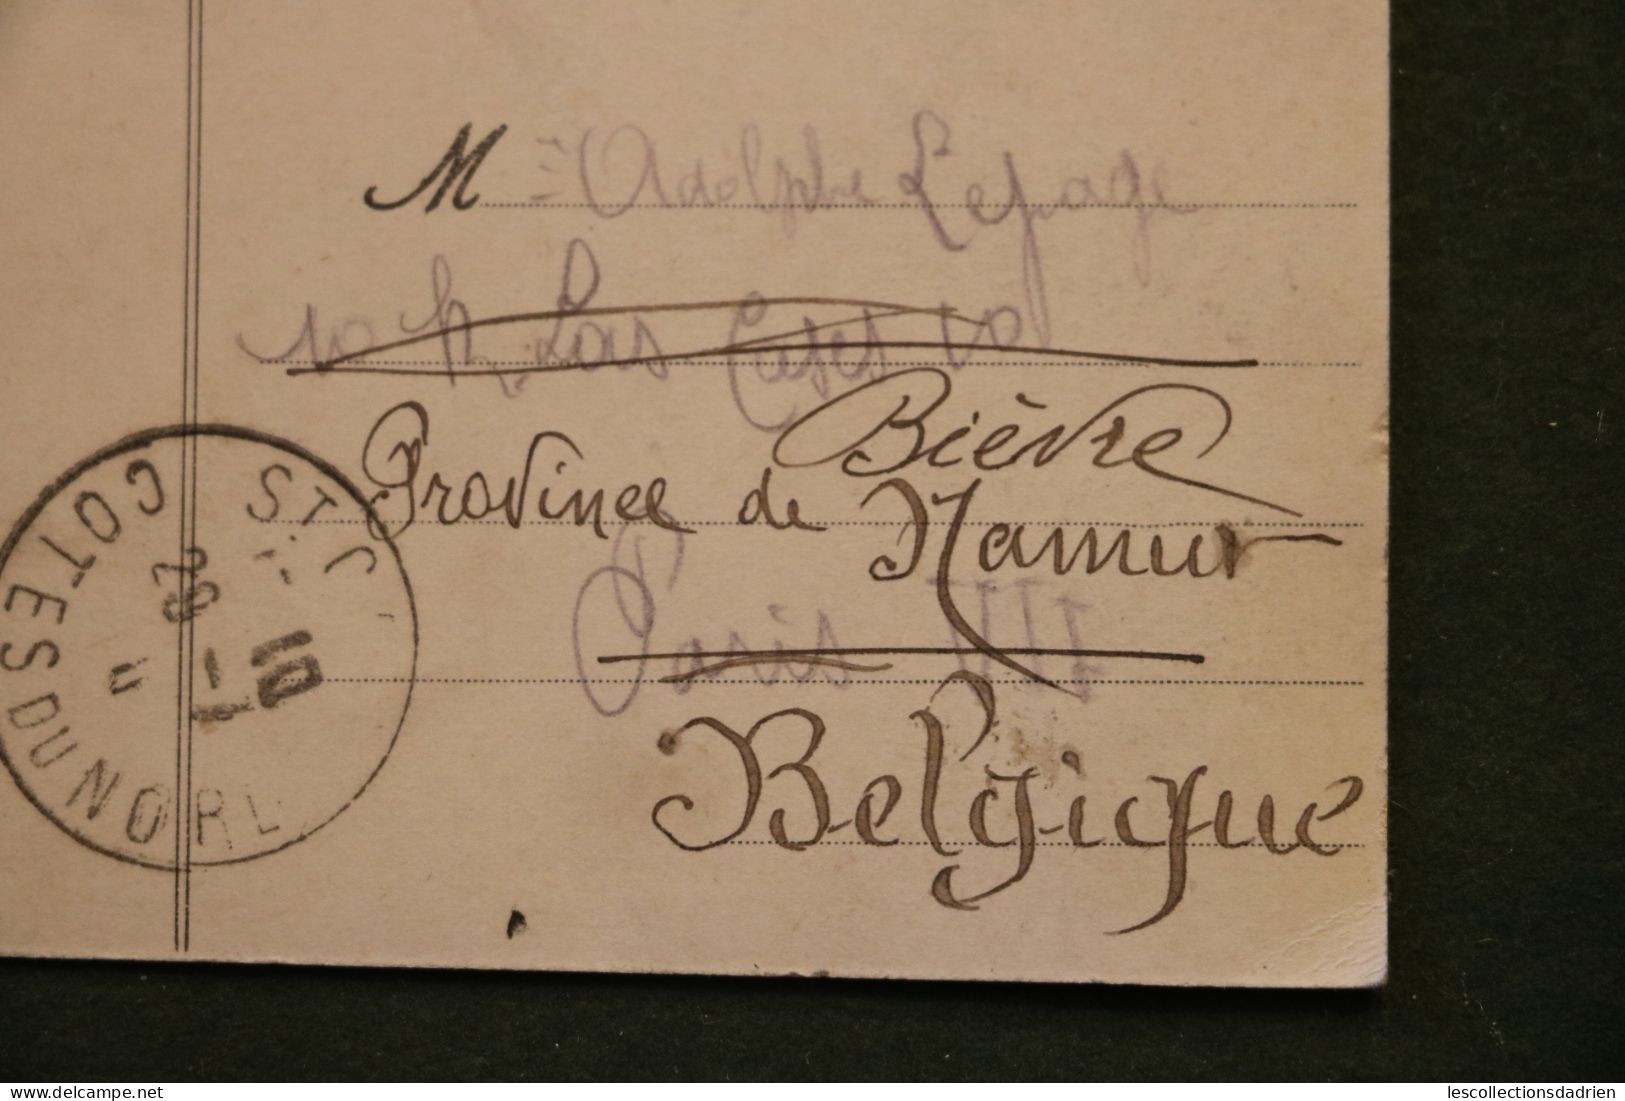 M Adolphe Lepage
10 R. Las Cases 10
Bièvre
Province de Namur
Paris VII
Belgique
ST C
COTES DU NORD
28 - 1
10
lescollectionsdadrien